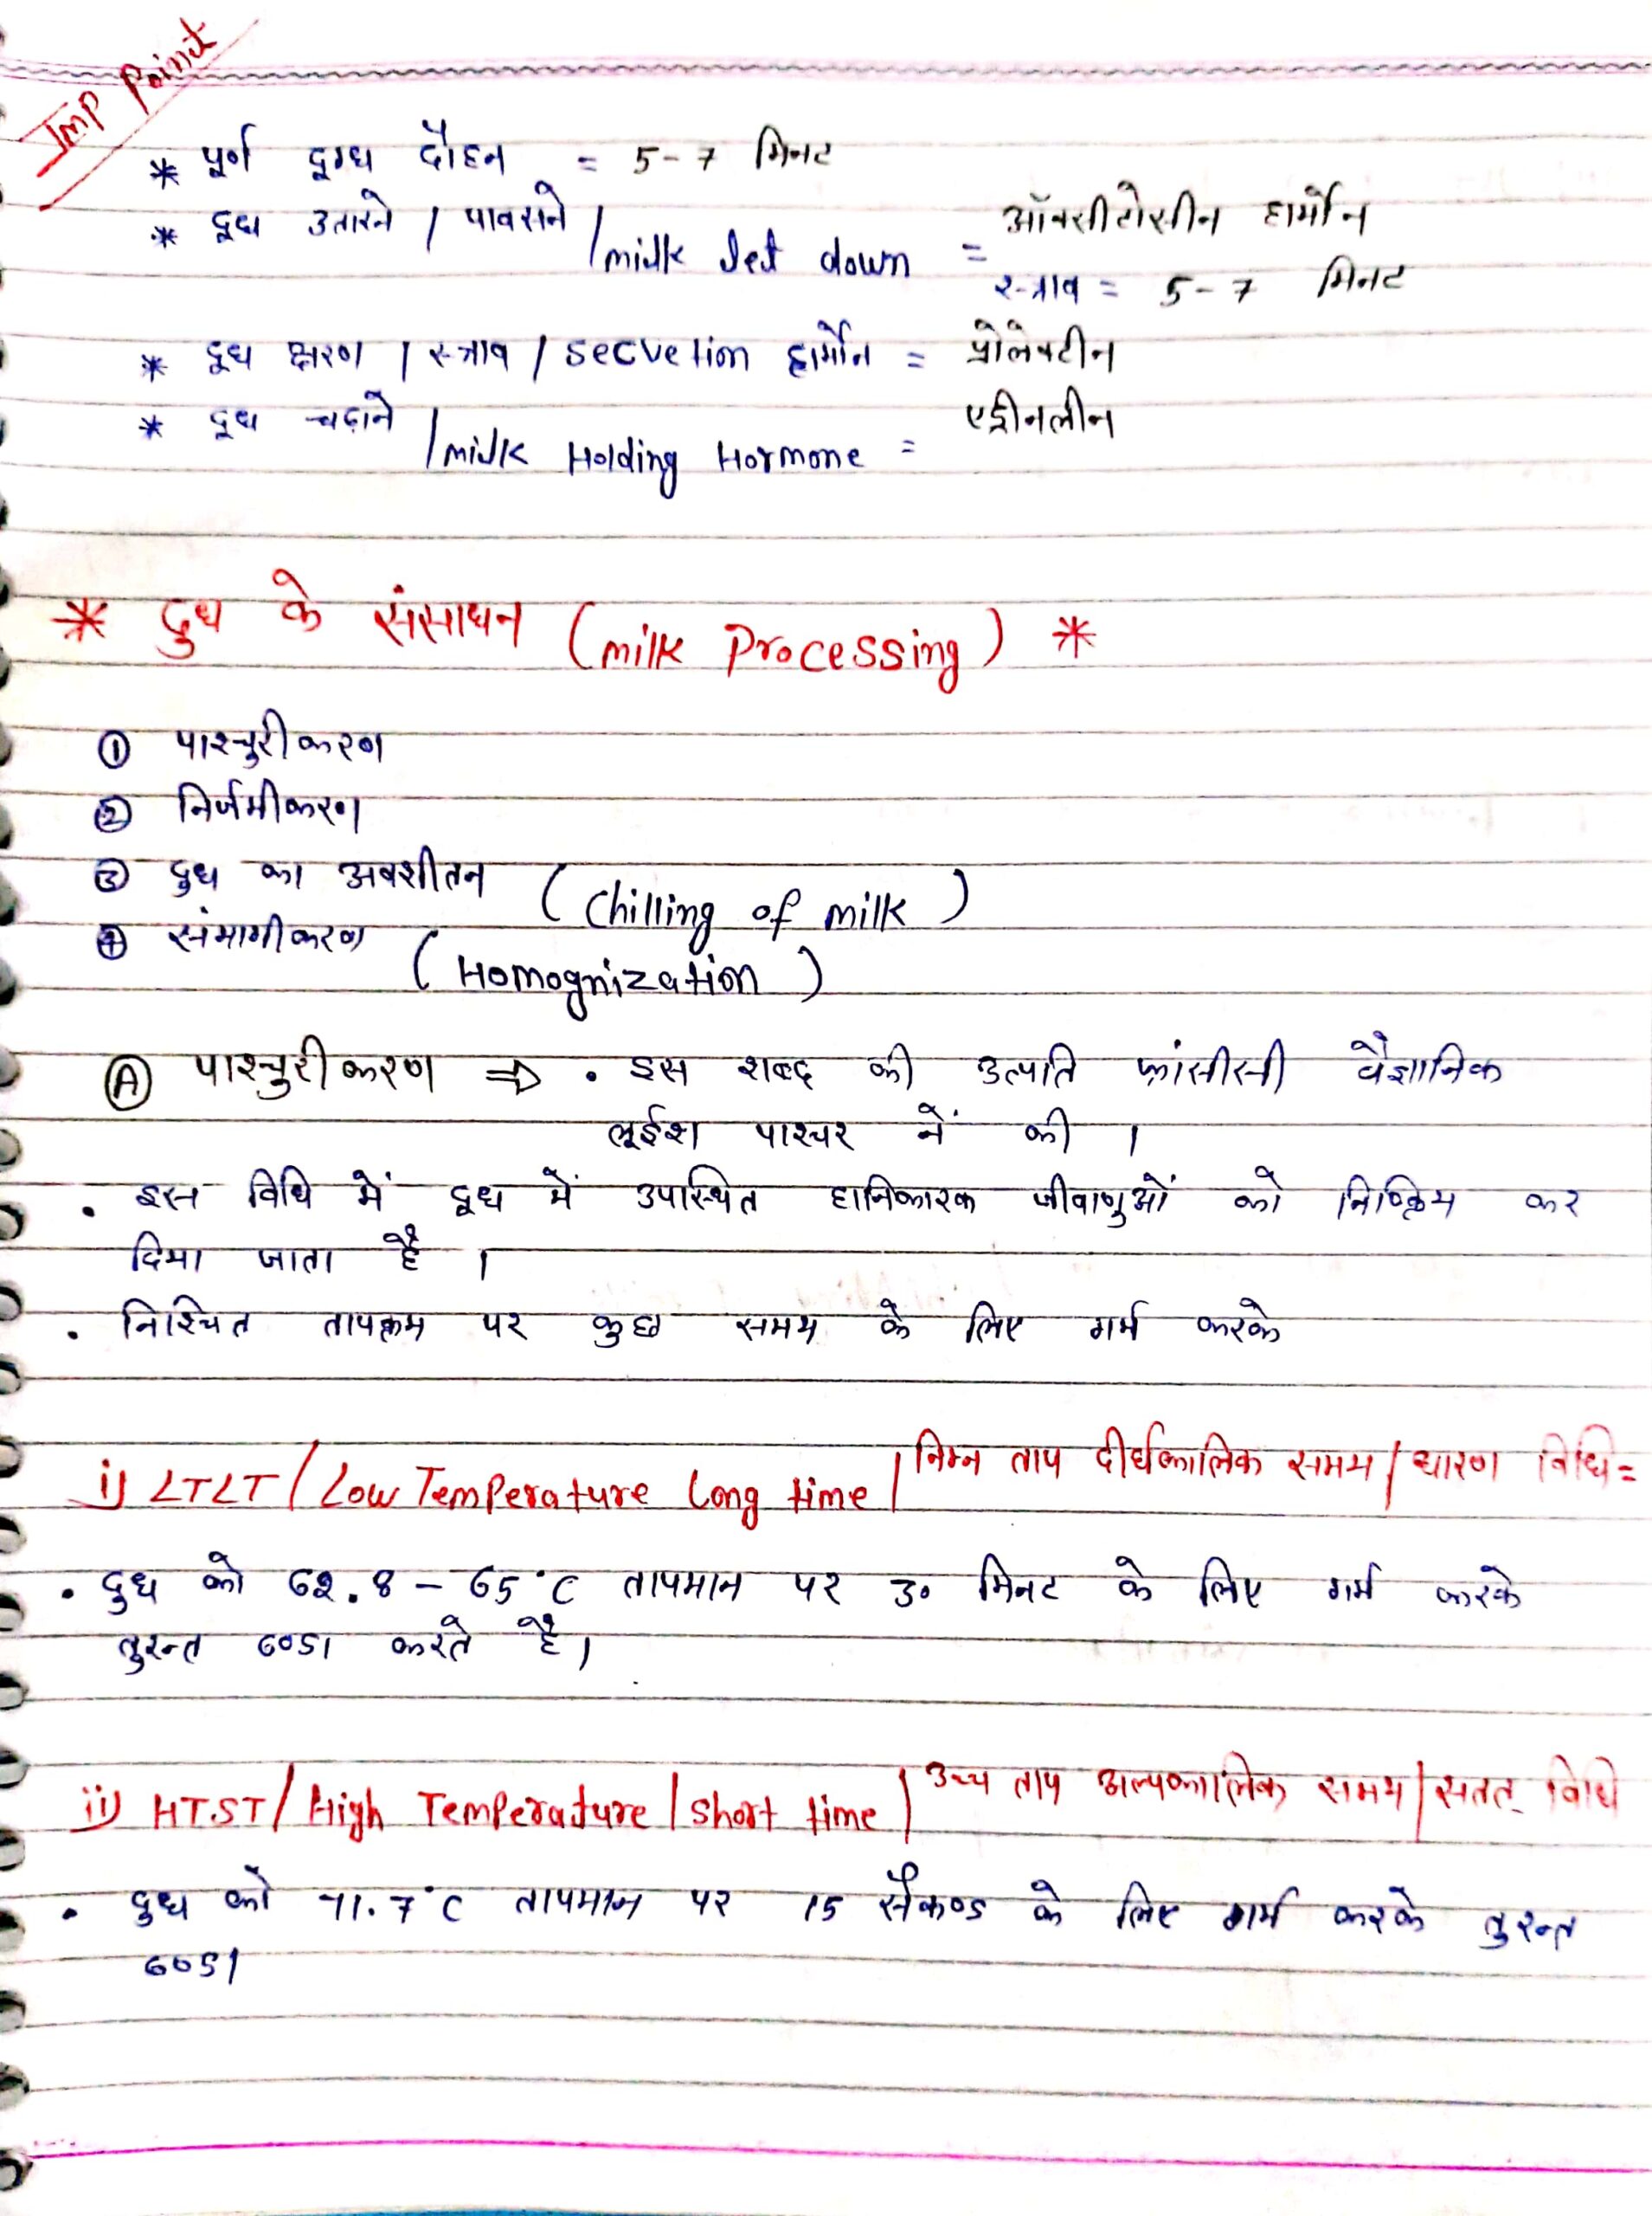 Imp Point
* पूर्ण दूग्ध दौहन = 5-7 मिनट
* दूध उतारने / पावसने / milk let down = ऑक्सीटोसीन हार्मोन
स्त्राव = 5-7 मिनट
* दूध क्षरण / स्त्राव / secretion हार्मोन = प्रोलेक्टीन
* दूध चढ़ाने / milk Holding Hormone = एड्रीनलीन
* दुध के संसाधन (milk Processing) *
① पाश्चुरीकरण
② निर्जमीकरण
③ दुध का अवशीतन (Chilling of milk)
④ संमागीकरण (Homognization)
Ⓐ पाश्चुरीकरण ⇒ • इस शब्द की उत्पति फ्रांसीसी वैज्ञानिक
लूईश पाश्चर नें की ।
• इस विधि में दूध में उपस्थित हानिकारक जीवाणुओं को निष्क्रिय कर
दिया जाता है ।
• निश्चित तापक्रम पर कुछ समय के लिए गर्म करके
i) LTLT / Low Temperature Long time / निम्न ताप दीर्घकालिक समय / धारण विधि =
• दुध को 62.8 - 65°C तापमान पर 30 मिनट के लिए गर्म करके
तुरन्त ठण्डा करते है।
ii) HTST / High Temperature / Short time / उच्च ताप अल्पकालिक समय / सतत् विधि
• दुध को 71.7°C तापमान पर 15 सैकण्ड के लिए गर्म करके तुरन्त
ठण्डा